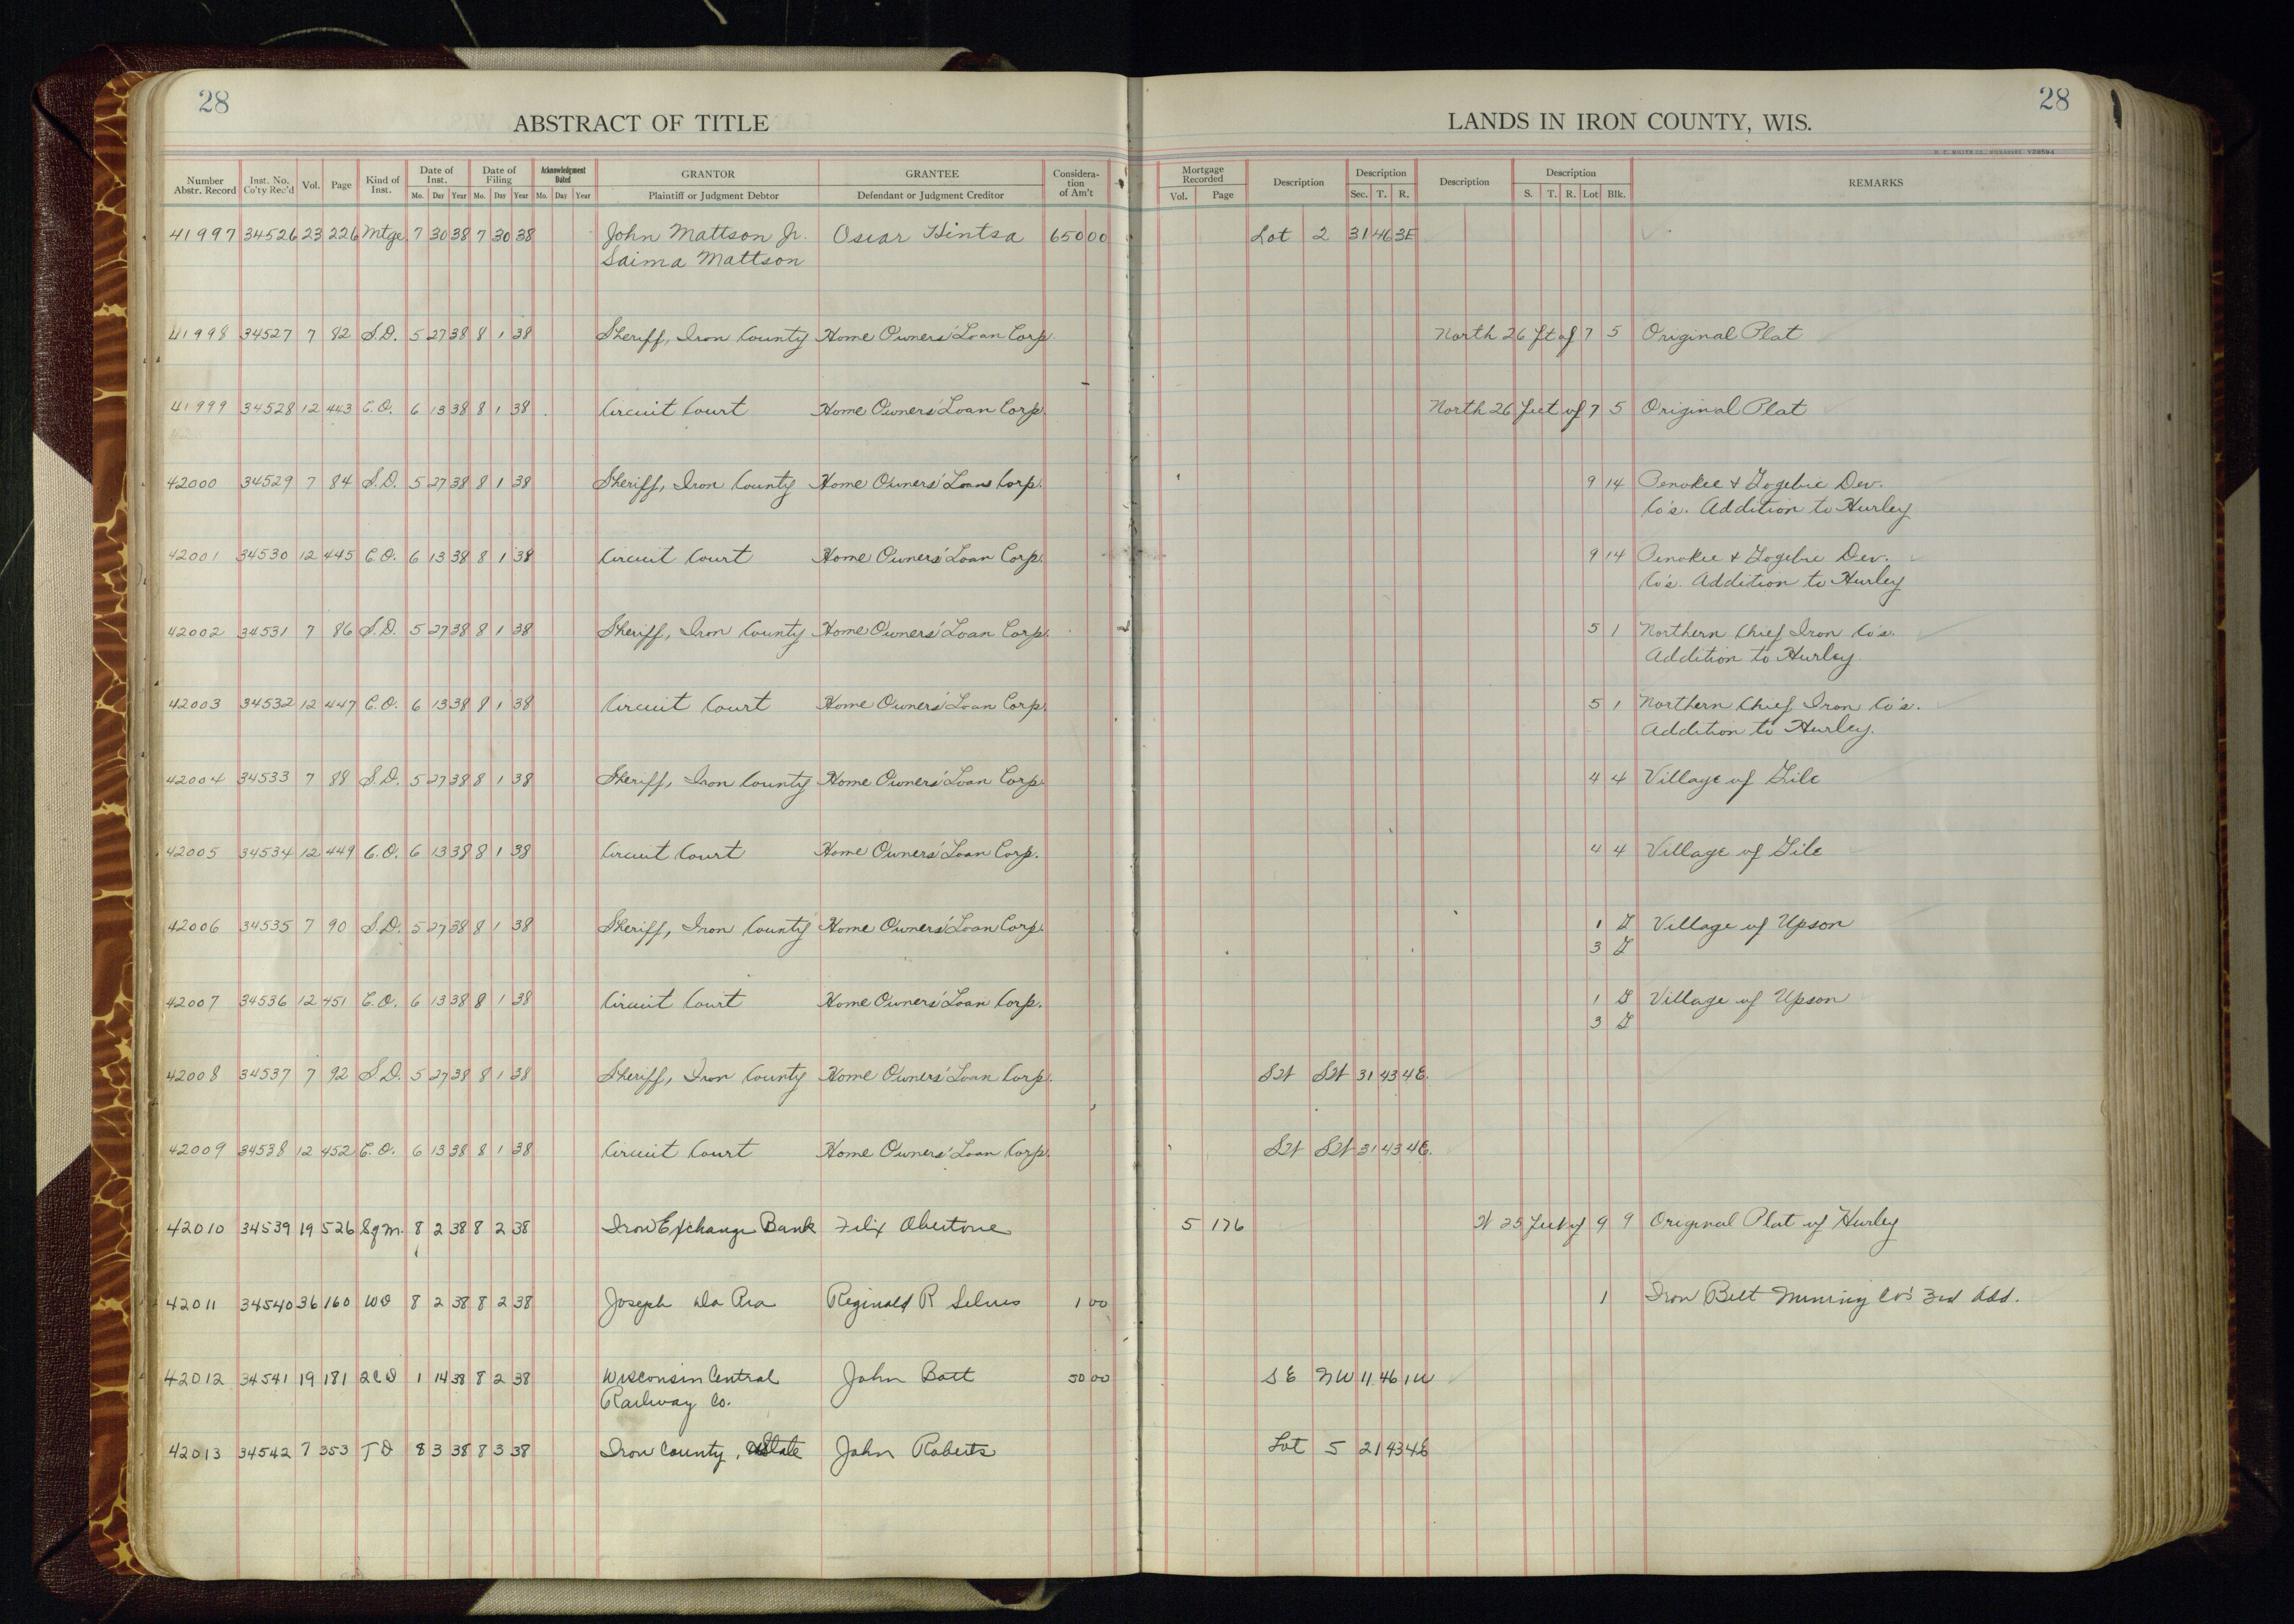 28
28
ABSTRACT OF TITLE
LANDS IN IRON COUNTY, WIS.
Number Abstr. Record Inst. No. Co'ty Rec'd Vol. Page Kind of Inst. Date of Inst. Mo. Day Year Date of Filing Mo. Day Year Acknowledgment Dated Mo. Day Year GRANTOR Plaintiff or Judgment Debtor GRANTEE Defendant or Judgment Creditor Considera-tion of Am't Mortgage Recorded Vol. Page Description Description Sec. T. R. Description Description S. T. R. Lot Blk. REMARKS
41997 34526 23 226 Mtge 7 30 38 7 30 38 John Mattson Jr. Oscar Hintsa 650 00 Lot 2 31 46 3E
Saima Mattson
41998 34527 7 82 S.D. 5 27 38 8 1 38 Sheriff, Iron County Home Owners' Loan Corp. North 26 ft of 7 5 Original Plat
41999 34528 12 443 C.O. 6 13 38 8 1 38 Circuit Court Home Owners' Loan Corp. North 26 feet of 7 5 Original Plat
42000 34529 7 84 S.D. 5 27 38 8 1 38 Sheriff, Iron County Home Owners' Loan Corp. 9 14 Penokee & Gogebic Dev.
Co's. Addition to Hurley
42001 34530 12 445 C.O. 6 13 38 8 1 38 Circuit Court Home Owners' Loan Corp. 9 14 Penokee & Gogebic Dev.
Co's. Addition to Hurley
42002 34531 7 86 S.D. 5 27 38 8 1 38 Sheriff, Iron County Home Owners' Loan Corp. 5 1 Northern Chief Iron Co's.
Addition to Hurley.
42003 34532 12 447 C.O. 6 13 38 8 1 38 Circuit Court Home Owners' Loan Corp. 5 1 Northern Chief Iron Co's.
Addition to Hurley.
42004 34533 7 88 S.D. 5 27 38 8 1 38 Sheriff, Iron County Home Owners' Loan Corp. 4 4 Village of Gile
42005 34534 12 449 C.O. 6 13 38 8 1 38 Circuit Court Home Owners' Loan Corp. 4 4 Village of Gile
42006 34535 7 90 S.D. 5 27 38 8 1 38 Sheriff, Iron County Home Owners' Loan Corp. 1 G Village of Upson
3 G
42007 34536 12 451 C.O. 6 13 38 8 1 38 Circuit Court Home Owners' Loan Corp. 1 G Village of Upson
3 G
42008 34537 7 92 S.D. 5 27 38 8 1 38 Sheriff, Iron County Home Owners' Loan Corp. SW SW 31 43 4E.
42009 34538 12 452 C.O. 6 13 38 8 1 38 Circuit Court Home Owners' Loan Corp. SW SW 31 43 4E.
42010 34539 19 526 Sgm. 8 2 38 8 2 38 Iron Exchange Bank Felix 5 176 25 feet of 9 9 Original Plat of Hurley
42011 34540 36 160 WD 8 2 38 8 2 38 Joseph Da Pra Reginald R 1 00 1 Iron Belt Mining Co's 3rd Add.
42012 34541 19 181 QCD 1 14 38 8 2 38 Wisconsin Central John Batt 50 00 SE NW 11 46 1W
Railway Co.
42013 34542 7 353 TD 8 3 38 8 3 38 Iron County, State John Roberts Lot 5 21 43 4E